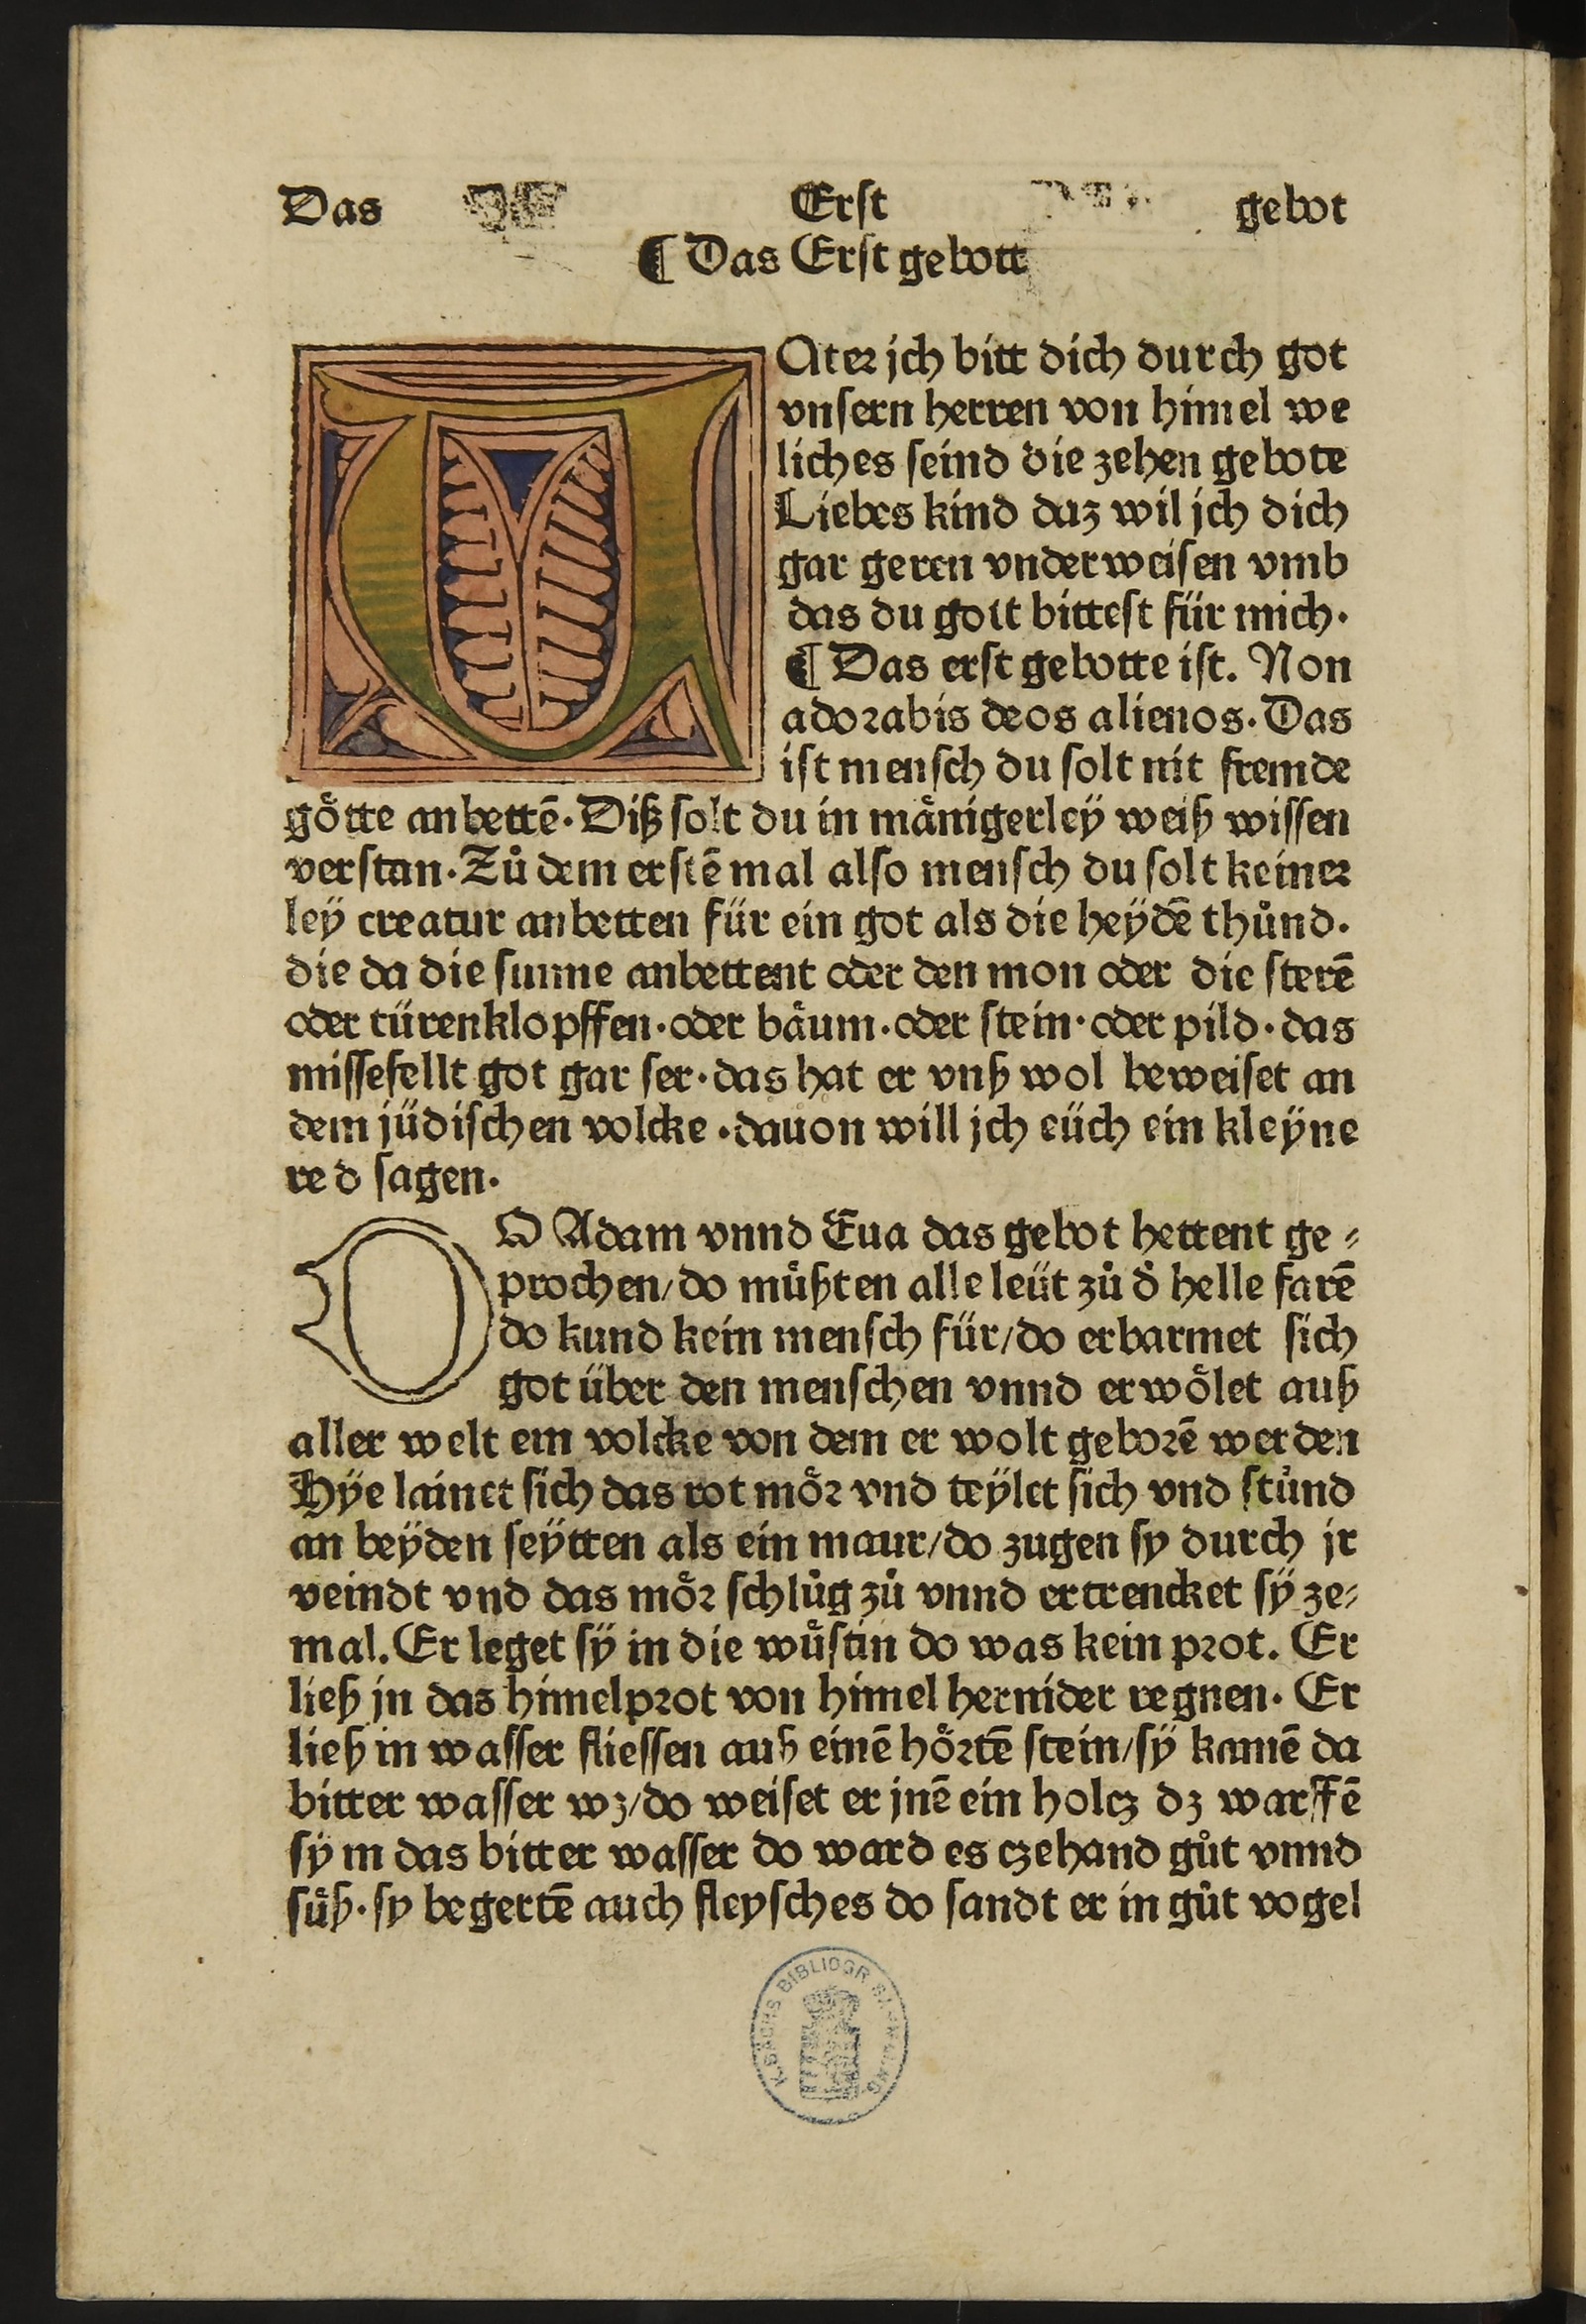 Das Erst gebot
¶ Das Erst gebott
VAter jch bitt dich durch got
vnſern herren von himel we
liches ſeind die zehen gebote
Liebes kind daz wil jch dich
gar geren vnderweiſen vmb
das du gott bitteſt für mich.
¶ Das erſt gebotte iſt. Non
adorabis deos alienos. Das
iſt menſch du ſolt nit fremde
goͤtte anbettē. Diß ſolt du in maͤnigerleÿ weiß wiſſen
verſtan. Zuͦ dem erſtē mal alſo menſch du ſolt keiner
leÿ creatur anbetten für ein got als die heÿdē thuͦnd.
die da die ſunne anbettent oder den mon oder die ſterē
oder türenklopffen. oder baͤum. oder ſtein. oder pild. das
miſſefellt got gar ſer. das hat er vnß wol beweiſet an
dem jüdiſchen volcke. dauon will jch eüch ein kleÿne
red ſagen.
DO Adam vnnd Eua das gebot hettent ge⸗
prochen/do muͤßten alle leüt zuͦ d̕ helle farē
do kund kein menſch für/do erbarmet ſich
got über den menſchen vnnd erwoͤlet auß
aller welt ein volcke von dem er wolt geborē werden
Hÿe lainet ſich das rot moͤr vnd teÿlet ſich vnd ſtuͦnd
an beÿden ſeÿtten als ein maur/do zugen ſy durch jr
veindt vnd das moͤr ſchluͦg zuͦ vnnd ertrencket ſÿ ze⸗
mal. Er leget ſÿ in die wuͤſtin do was kein prot. Er
ließ jn das himelprot von himel hernider regnen. Er
ließ in waſſer flieſſen auß einē hoͤrtē ſtein/ſÿ kamē da
bitter waſſer wz/do weiſet er jnē ein holcz dz warffē
ſÿ in das bitter waſſer do ward es czehand guͦt vnnd
ſuͤß. ſy begertē auch fleyſches do ſandt er in guͦt vogel
BIBLIOGR